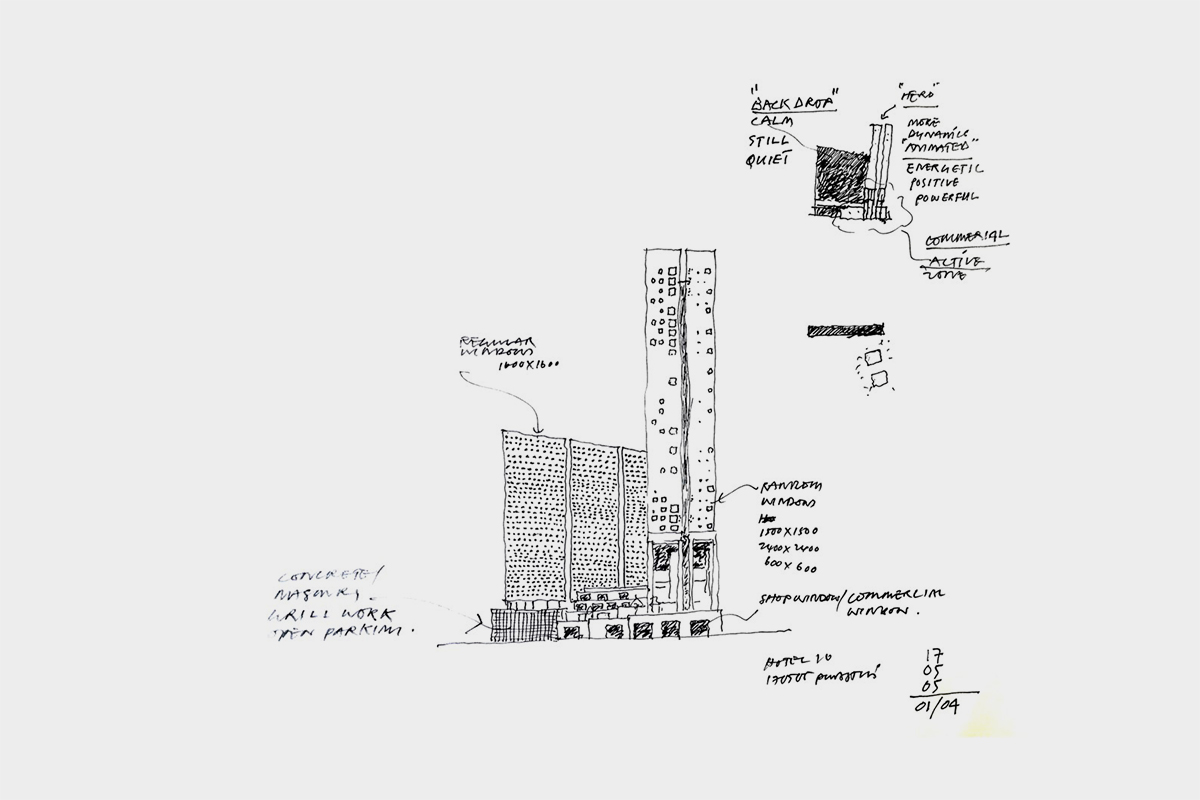 "BACK DROP"
CALM
STILL
QUIET
"HERO"
MORE
DYNAMIC
"ANIMATED"
ENERGETIC
POSITIVE
POWERFUL
COMMERCIAL
ACTIVE
ZONE
REGULAR
WINDOWS
1600X1600
RANDOM
WINDOWS
1500X1500
2400X2400
600X600
CONCRETE/
MASONRY
GRILL WORK
OPEN PARKING.
SHOP WINDOW/COMMERCIAL
WINDOW.
HOTEL
17
05
05
01/04